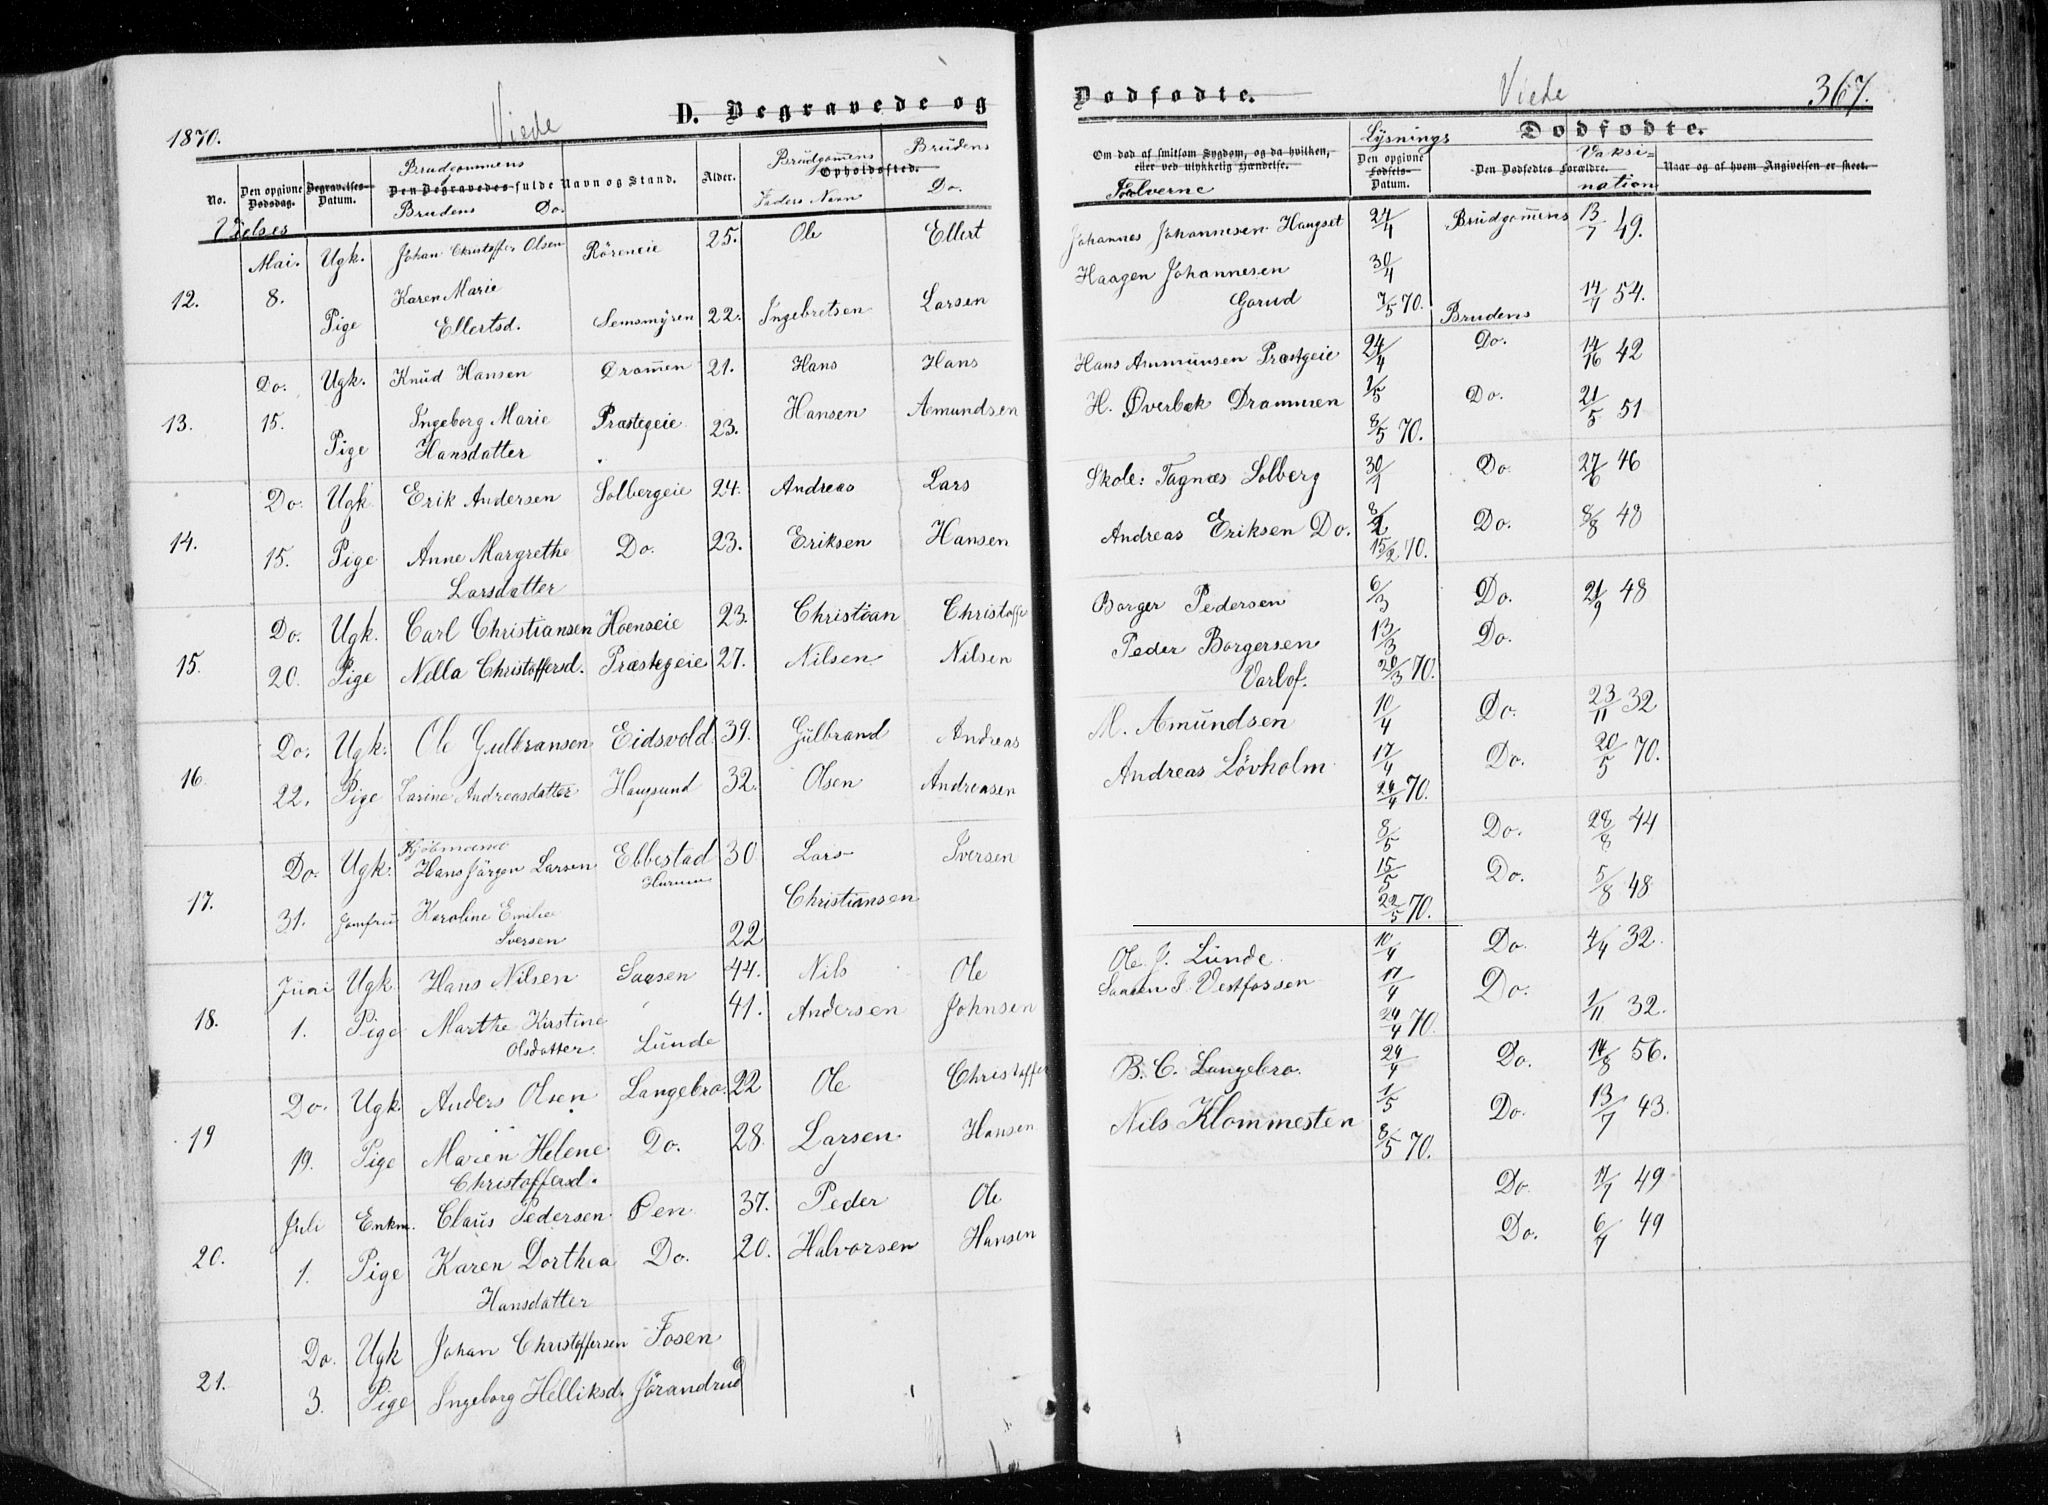 1870.
Viede
D. Begravede og
No.
Den opgivne Dødsdag.
Begravelses-Datum.
Brudgommens
Den Begravedes fulde Navn og Stand.
Brudens Do.
Alder.
Brudgommens
Opholdssted.
Faders Navn
Brudens
Do.
Mai. Ugk. Johan Christoffer Olsen Röreneie 25. Ole Ellert
12. 8. Pige Karen Marie
Ellertsd. Semsmyren 22. Ingebretsen Larsen
Do. Ugk. Knud Hansen Drammen 21. Hans Hans
13. 15. Pige Ingeborg Marie Præstegeie 23. Hansen Amundsen
Hansdatter
Do. Ugk. Erik Andersen Solbergeie 24. Andreas Lars
14. 15. Pige Anne Margrethe Do. 23. Eriksen Hansen
Larsdatter
Do. Ugk. Carl Christiansen Hoenseie 23. Christian Christoffe
15. 20. Pige Nella Christoffersd. Præstegeie 27. Nilsen Nilsen
Do. Ugk. Ole Gulbransen Eidsvold 39. Gulbrand Andreas
16. 22. Pige Zarine Andreasdatter Haugsund 32. Olsen Andreasen
Do. Ugk. Hans Jörgen Larsen Ebbestad 30 Lars Iversen
Hurum
17. 31. Jomfru Karoline Emilie Christiansen
Iversen 22
Juni Ugk. Hans Nilsen Saasen 44. Nils Ole
18. 1. Pige Marthe Kirstine 41. Andersen Johnsen
Olsdatter Lunde
Do. Ugk. Anders Olsen Langebro 22 Ole Christoffer
19 19. Pige Maren Helene Do. 28. Larsen Hansen
Christoffersd.
Juli Enkm. Claus Pedersen Öen 37. Peder Ole
20. 1. Pige Karen Dorthea Do. 20. Halvorsen Hansen
Hansdatter
Do. Ugk Johan Christoffersen Fosen
21. 3. Pige Ingeborg Helliksd. Jörandrud
Dødfødte.
Viede
367.
Dødfødte.
Om død af smitsom Sygdom, og da hvilken,
eller ved ulykkelig Hændelse.
Forlverne
Lysnings
Den opgivne Fødsels-Datum.
Den Dødfødtes Forældre.
Vaksi-
nation
Naar og af hvem Angivelsen er skeet.
Johannes Johannesen Haugset 24/4 Brudgommens 13/7 49.
Haagen Johannesen 30/4
Gorud 7/5 70. Brudens 14/7 54.
Hans Ammunsen Præstgeie 24/4 Do. 14/16 42
H. Øverbek Drammen 1/5 Do. 21/5 51
8/5 70.
Skole: Tagnæs Solberg 30/1 Do. 27/6 46
Andreas Eriksen Do. 8/2 Do. 8/8 48
15/2 70.
Borger Pedersen 6/3 Do. 21/9 48
Peder Borgersen 13/3 Do.
Varlof. 20/3 70.
M. Amundsen 10/4 Do. 23/11 32
Andreas Lövholm 17/4 Do. 20/5 70.
24/4 70.
8/5 Do. 28/8 44
15/5 Do. 5/8 48
22/5 70.
Ole J. Lunde 10/4 Do. 4/4 32.
Saasen I. Vestfossen 17/4 Do. 1/11 32.
24/4 70.
B. C. Langebro. 24/4 Do. 14/8 56.
Nils Klommesten 1/5 Do. 13/7 43.
8/5 70.
Do. 17/7 49
Do. 6/7 49